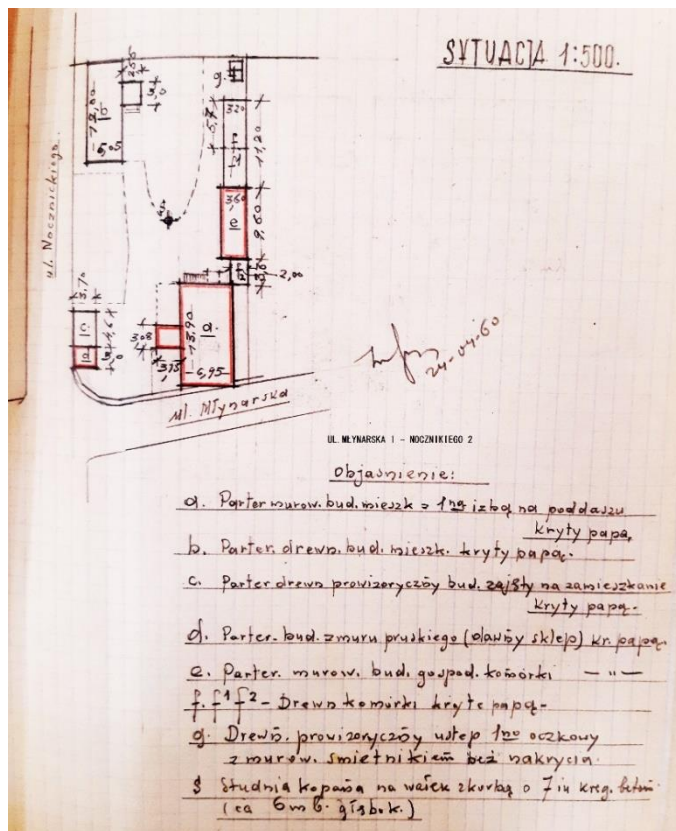 SYTUACJA 1:500.
g.
320
b
12,60
5,05
3,0
11,20
ul. Nocznickiego
360
e
9,60
2,00
3,70
c
a.
13,90
3,08
3,75
6,95
d
24-04-60
ul. Młynarska
UL. MŁYNARSKA 1 - NOCZNIKIEGO 2
Objaśnienie:
a. Parter murow. bud. mieszk z 1ną izbą na poddaszu
kryty papą.
b. Parter. drewn. bud. mieszk. kryty papą.
c. Parter drewn prowizoryczny bud. zajęty na zamieszkanie
kryty papą.
d. Parter. bud. z muru pruskiego (dawny sklep) kr. papą.
e. Parter. murow. bud. gospod. komórki — " —
f. f1 f2 - Drewn komórki kryte papą-
g. Drewn. prowizoryczny ustęp 1no oczkowy
z murow. śmietnikiem bez nakrycia.
S Studnia kopana na wałek z korbą o 7 iu kręg. beton
(ca 6 mb. głębok.)